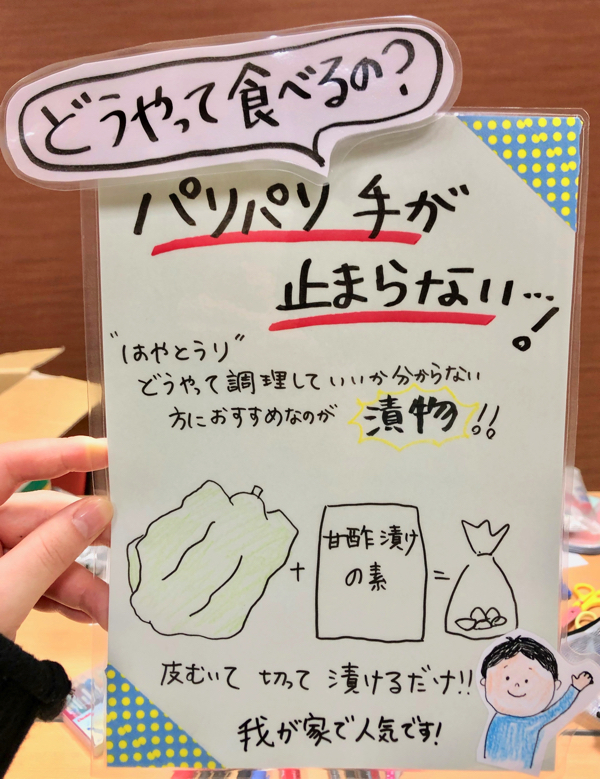 どうやって食べるの?
パリパリ手が
止まらない…!
"はやとうり"
どうやって調理していいか分からない
方におすすめなのが 漬物!!
甘酢漬け
の素
+
=
皮むいて 切って 漬けるだけ!!
我が家で人気です!